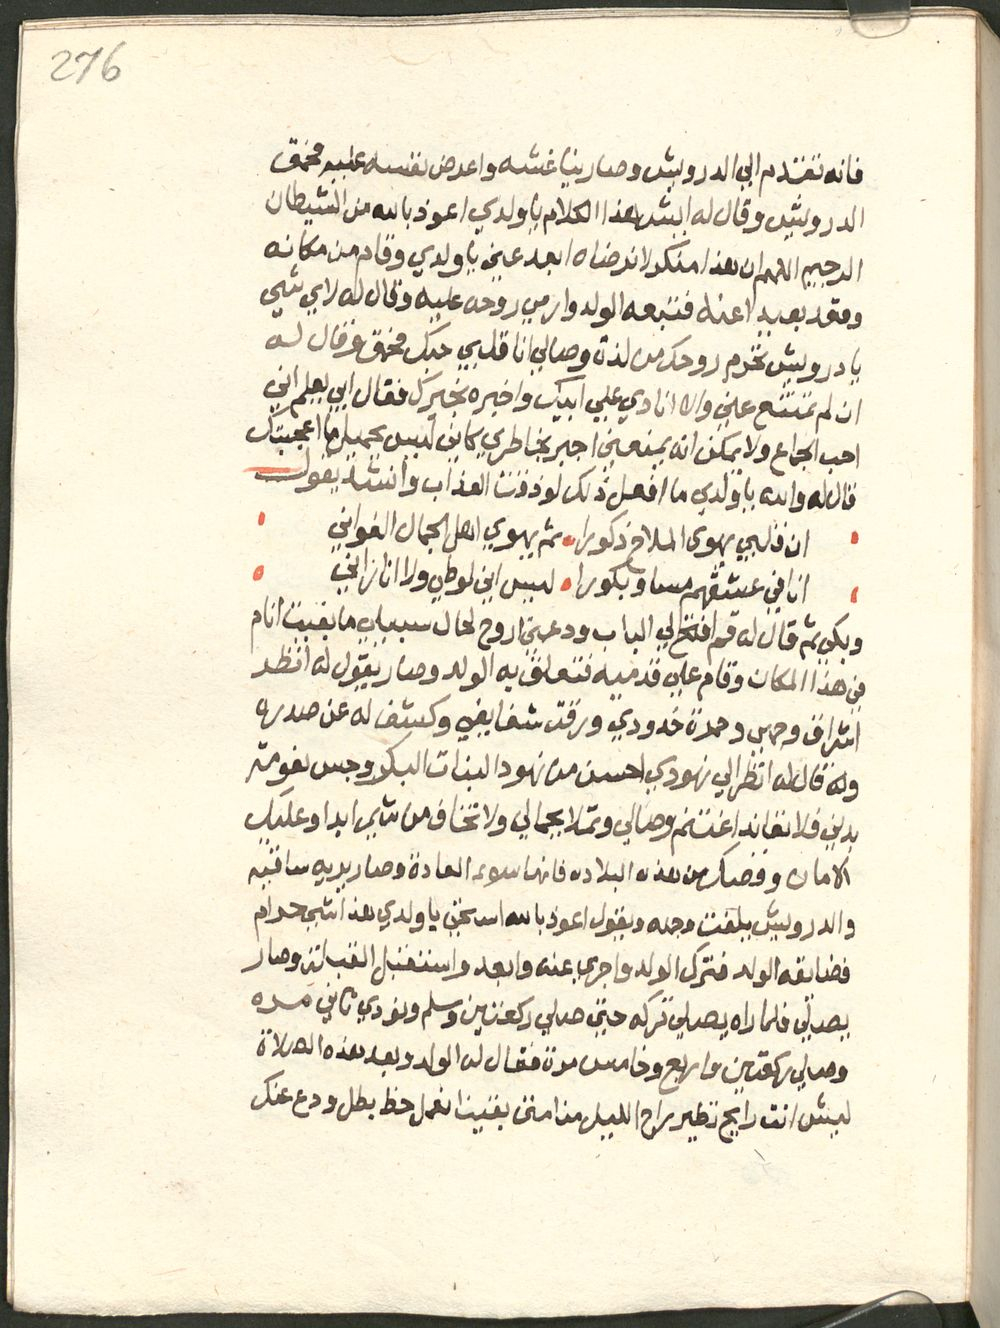 276
فانه تقدم الي الدرويش وصار يناغشه واعرض نفسه عليه فحمق
الدرويش وقال له ايش هذا الكلام يا ولدي اعوذ بالله من الشيطان
الرجيم اللهم ان هذا منكر لا نرضاه ابعد عني يا ولدي وقام من مكانه
وقعد بعيدا عنه فتبعه الولد وارمي روحه عليه وقال له لاي شي
يا درويش تحرم روحك من لذة وصالي انا قلبي حبك فحمق وقال له
ان لم تمتنع عني والا انادي علي ابيك واخبره بخبرك فقال ابي يعلم اني
احب الجماع ولا يمكن انه يمنعني اجبر بخاطري كاني ليس جميل ما اعجبتك
قال له والله يا ولدي ما افعل ذلك لو ذقت العذاب وانشد يقول
ان قلبي يهوي الملاح ذكورا ثم يهوي اهل الجمال الغواني
انا في عشقهم مسا وبكورا ليس اني لوطي ولا انا زاني
وبكي ثم قال له قم افتح لي الباب ودعني اروح لحال سبيلي ما بقيت انام
في هذا المكان وقام علي قدميه فتعلق به الولد وصار يقول له انظر
اشراق وجهي وحمرة خدودي ورقت شفايفي وكشف له عن صدره
وله قال له انظر الي نهودي احسن من نهود البنات البكور وجس نعومة
بدني فلا تعاند اغتنم وصالي وتملا بجمالي ولا تخاف من شي ابدا وعليك
الامان وفضك من هذه البلاده فانها سوء العادة وصار يريه ساقيه
والدرويش يلفت وجهه ويقول اعوذ بالله استحي يا ولدي هذا شي حرام
فضايقه الولد فترك الولد واجري عنه وابعد واستقبل القبلة وصار
يصلي فلما راه يصلي تركه حتي صلي ركعتين وسلم ونودي ثاني مره
وصلي ركعتين واربع وخامس مرة فقال له الولد وبعد هذه الصلاة
ليش انت رايح تطير راح الليل منا متي بقينا نعمل حظ بطل ودع عنك